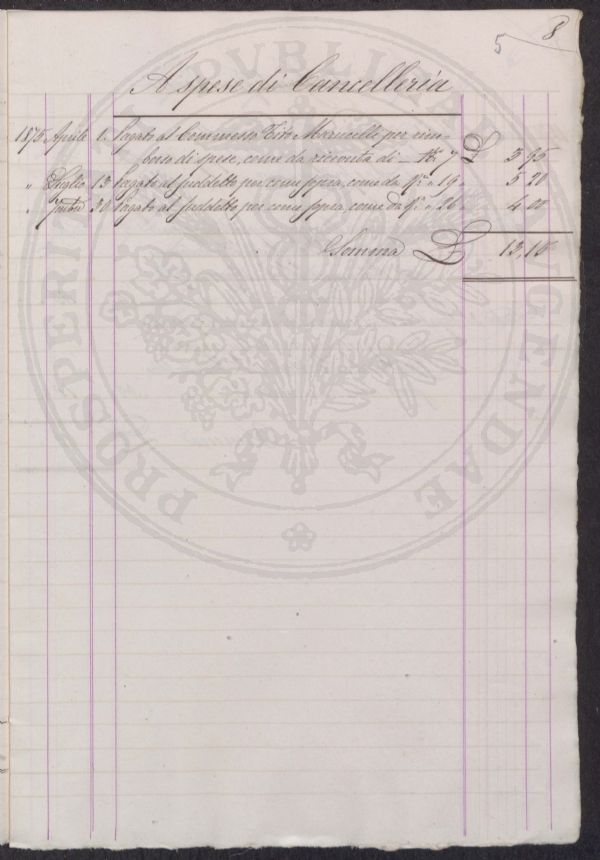 5 8
A spese di Cancelleria
1875 Aprile 1. Pagato al Commesso Tito Marucelli per rim-
borso di spese, come da ricevuta di N. 7 £ 3 95
" Luglio 13 Pagato al suddetto per come sopra, come da Ra. a 19 " 5 20
" 30 Pagato al suddetto per come sopra, come da Ra. a 26 " 4 00
Somma £ 13,15
PROSPERITATI PUBLICAE AUGENDAE